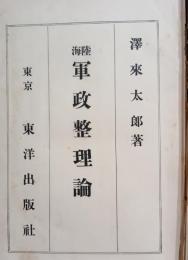 澤來太郎著
陸海軍政整理論
東京 東洋出版社